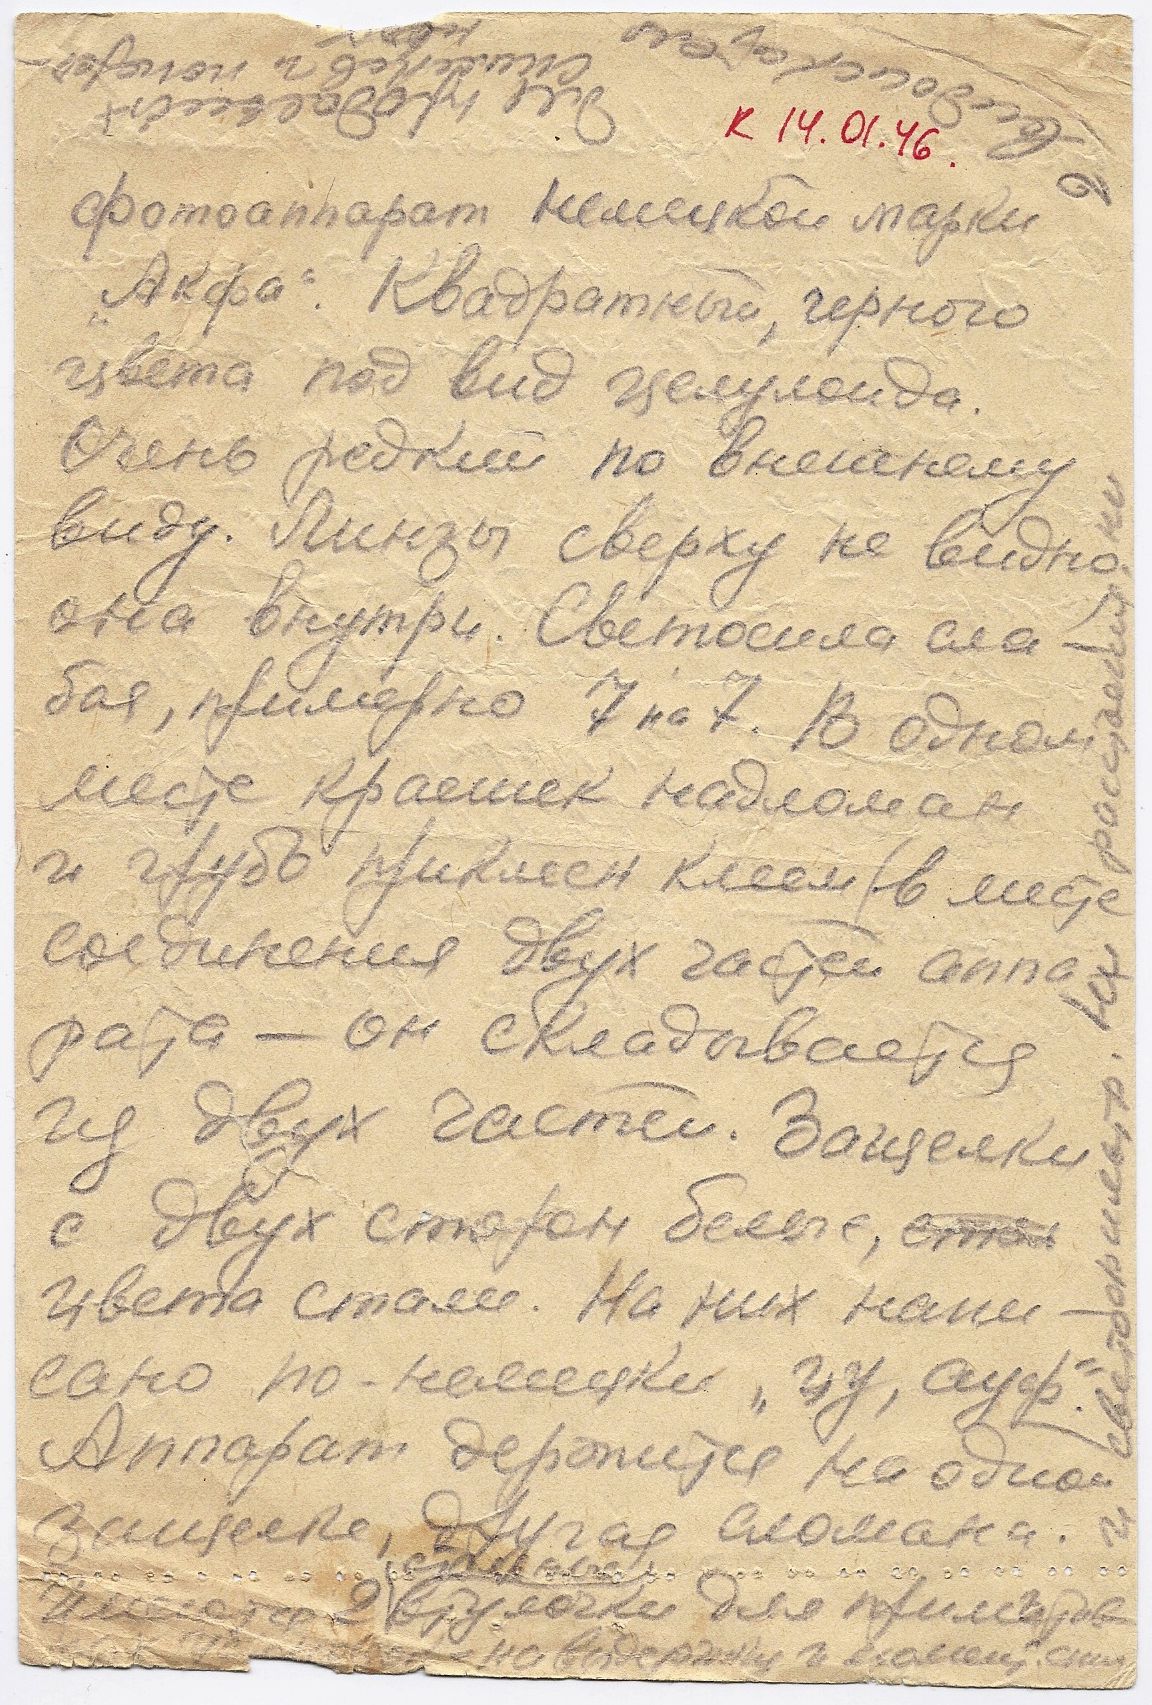 к 14.01.46.
фотоаппарат немецкой марки
„Акфа“. Квадратный, черного
цвета под вид целулоида.
Очень редкий по внешнему
виду. Линзы сверху не видно.
она внутри. Светосила сла-
бая, примерно 7 на 7. В одном
месте краешек надломан
и грубо приклеен клеем (в месте
соединения двух частей аппа-
рата — он складывается
из двух частей. Защелки
с двух сторон белые,
цвета стали. На них напи-
сано по-немецки „цу, ауф“.
Аппарат держится на одной
защелке, другая сломана. и
2 втулочки для
на выдержки и
светофильтр. Их